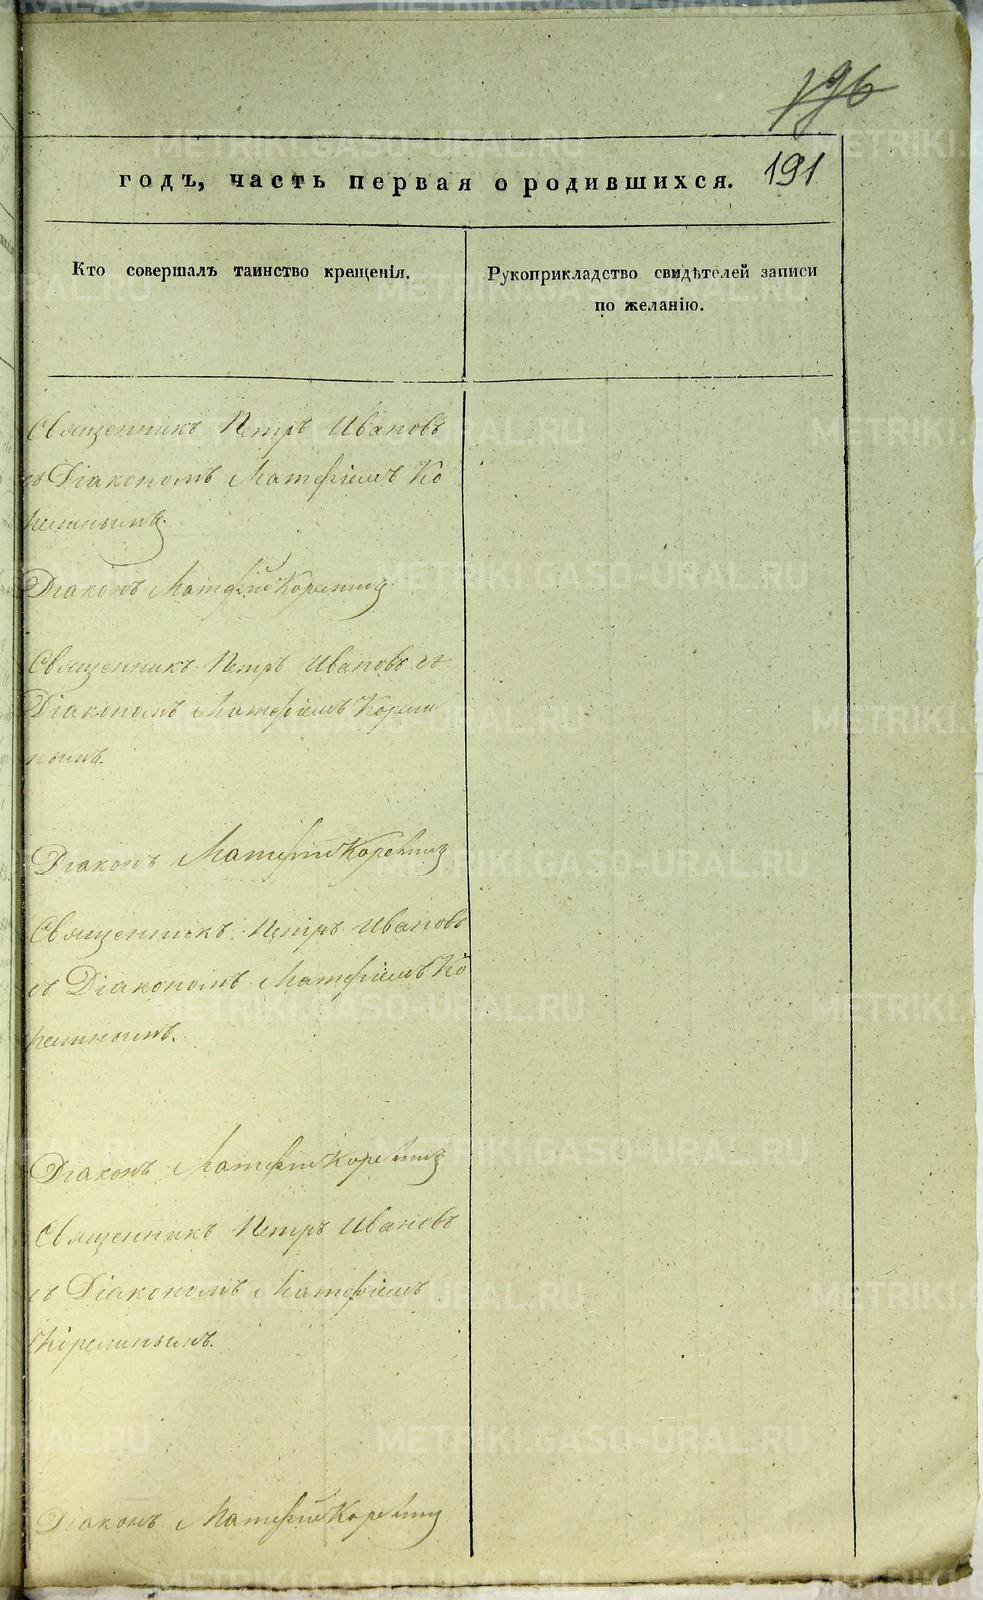 196
191
годъ, часть первая о родившихся.
Кто совершалъ таинство крещенія.
Рукоприкладство свидѣтелей записи
по желанію.
Священникъ Петръ Ивановъ
съ Діакономъ Матфіемъ Ко
релинымъ.
Діаконъ Матфій Корелинъ
Священникъ Петръ Ивановъ съ
Діакономъ Матфіемъ Корели
нымъ.
Діаконъ Матфій Корелинъ
Священникъ Петръ Ивановъ
съ Діакономъ Матфіемъ Ко
релинымъ.
Діаконъ Матфій Корелинъ
Священникъ Петръ Ивановъ
съ Діакономъ Матфіемъ
Корелинымъ.
Діаконъ Матфій Корелинъ
METRIKI.GASO-URAL.RU